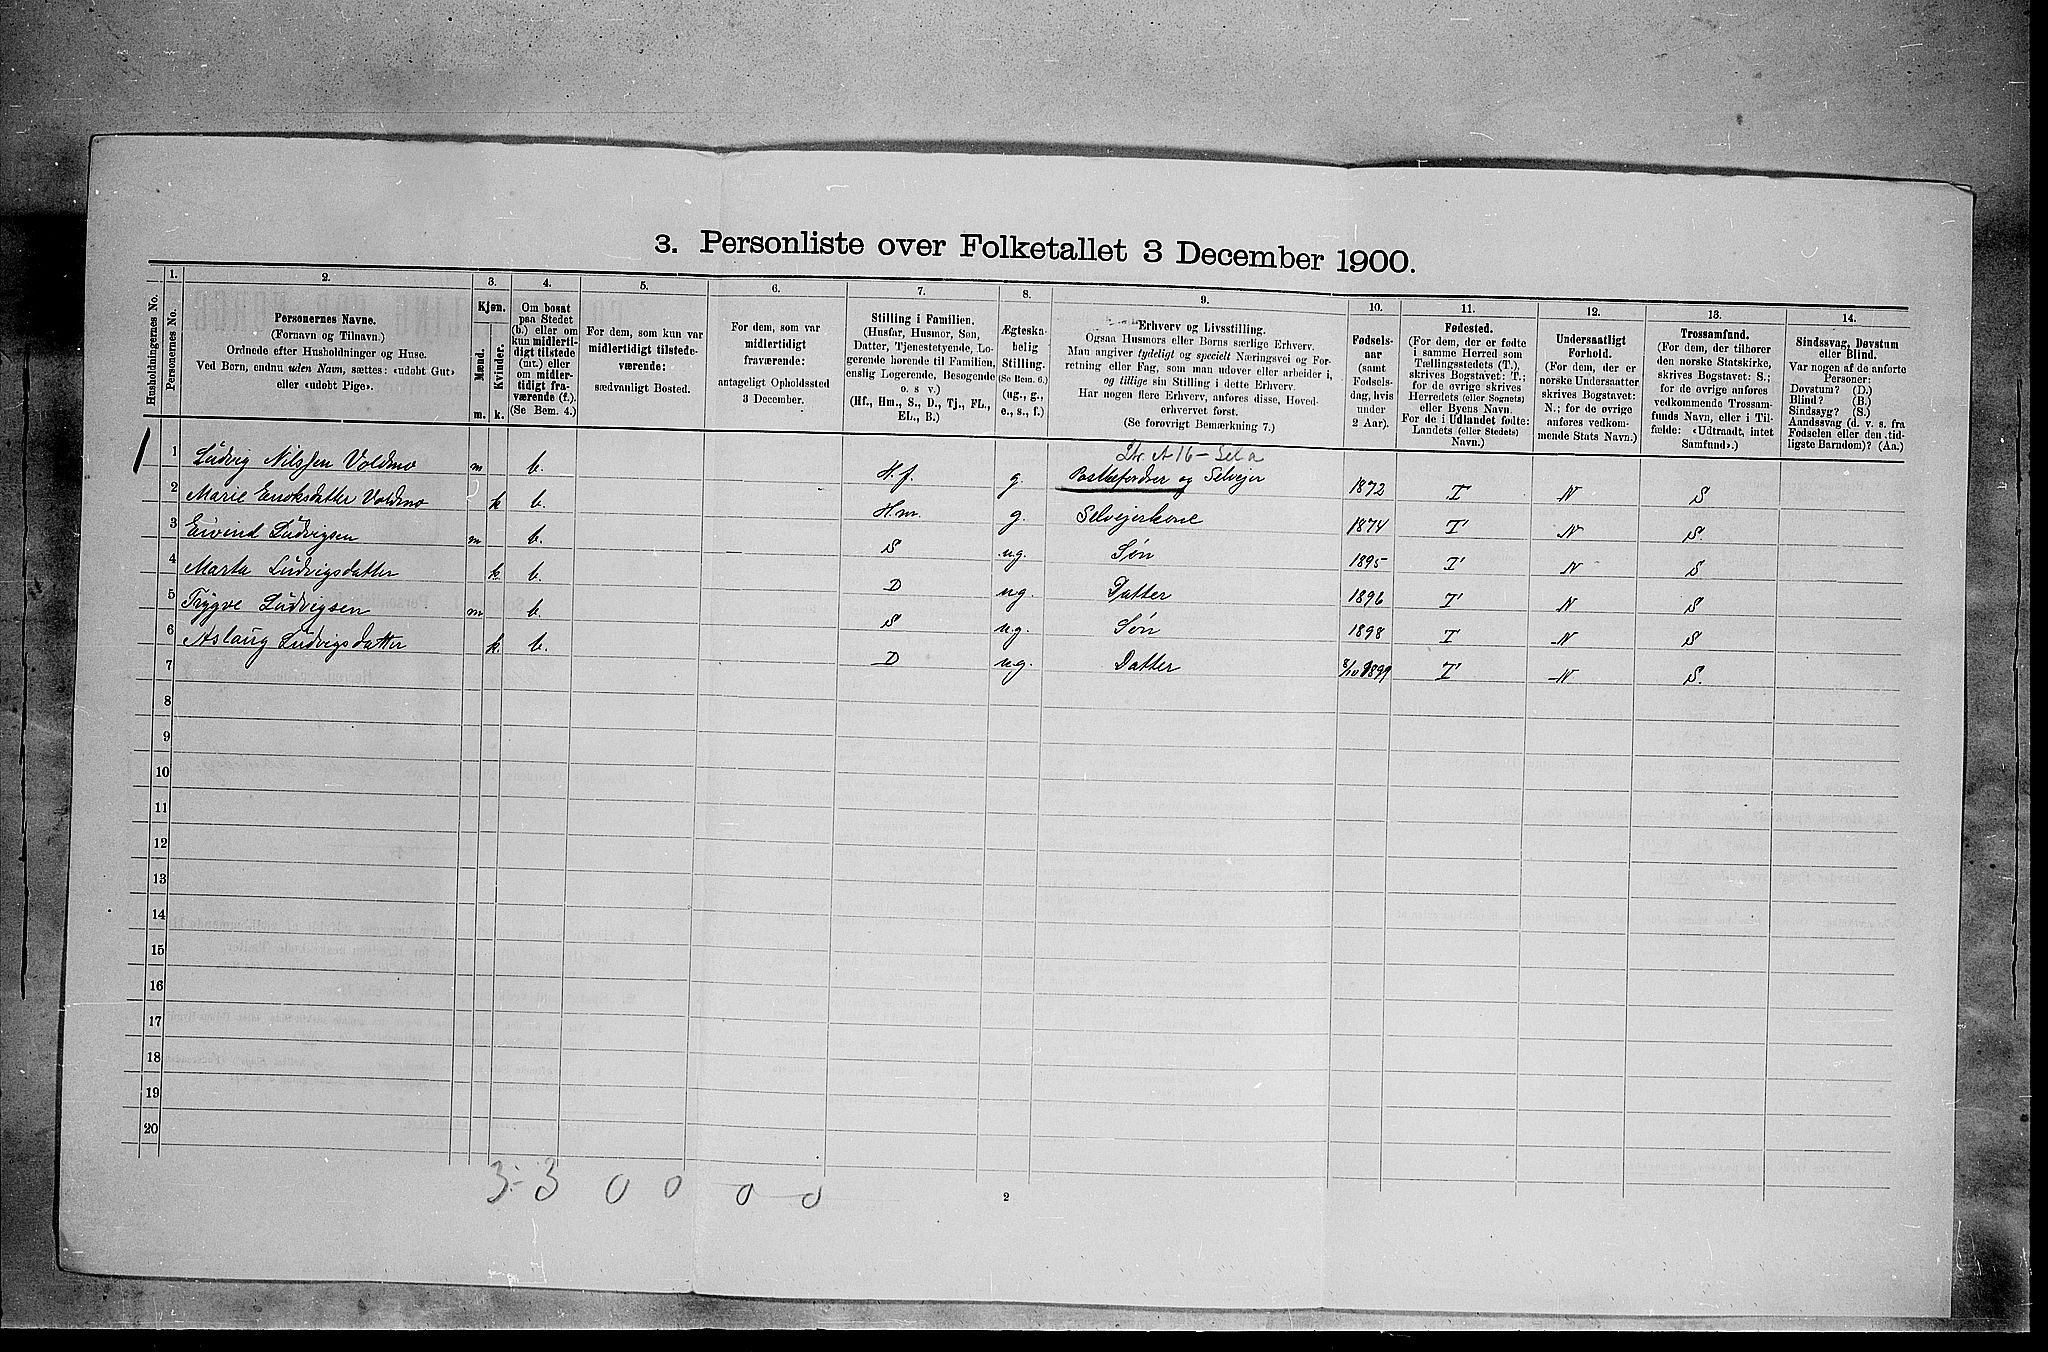 3. Personliste over Folketallet 3 December 1900.
Husholdningernes No.
1.
Personernes No.
2.
Personernes Navne.
(Fornavn og Tilnavn.)
Ordnede efter Husholdninger og Huse.
Ved Børn, endnu uden Navn, sættes: «udøbt Gut»
eller «udøbt Pige».
3.
Kjøn.
Mænd.
Kvinder.
m. k.
4.
Om bosat
paa Stedet
(b.) eller om
kun midlerti-
digt tilstede
(mt.) eller
om midler-
tidigt fra-
værende (f.).
(Se Bem. 4.)
5.
For dem, som kun var
midlertidigt tilstede-
værende:
sædvanligt Bosted.
6.
For dem, som var
midlertidigt
fraværende:
antageligt Opholdssted
3 December.
7.
Stilling i Familien.
(Husfar, Husmor, Søn,
Datter, Tjenestetyende, Lo-
gerende hørende til Familien,
enslig Logerende, Besøgende
o. s v.)
(Hf., Hm., S., D., Tj., FL.,
EL., B.)
8.
Ægteska-
belig
Stilling.
(Se Bem. 6.)
(ug., g.,
e., s., f.)
9.
Erhverv og Livsstilling.
Ogsaa Husmors eller Børns særlige Erhverv.
Man angiver tydeligt og specielt Næringsvei og For-
retning eller Fag, som man udover eller arbeider i,
og tillige sin Stilling i dette Erhverv.
Har nogen flere Erhverv, anføres disse, Hoved-
erhvervet først.
(Se forøvrigt Bemærkning 7.)
10.
Fødsels-
aar
(samt
Fødsels-
dag, hvis
under
2 Aar).
11.
Fødested.
(For dem, der er fødte
i samme Herred som
Tællingsstedets (T.),
skrives Bogstavet: T.;
for de øvrige skrives
Herredets (eller Sognets)
eller Byens Navn.
For de i Udlandet fødte:
Landets (eller Stedets)
Navn.)
12.
Undersaatligt
Forhold.
(For dem, der er
norske Undersaatter
skrives Bogstavet:
N.; for de øvrige
anføres vedkom-
mende Stats Navn.)
13.
Trossamfund.
(For dem, der tilhører
den norske Statskirke,
skrives Bogstavet: S.;
for de øvrige anføres
vedkommende Trossam-
funds Navn, eller i Til-
fælde: «Udtraadt, intet
Samfund».)
14.
Sindssvag, Døvstum
eller Blind.
Var nogen af de anførte
Personer:
Døvstum? (D.)
Blind? (B.)
Sindssyg? (S.)
Aandssvag (d. v. s. fra
Fødselen eller den tid-
ligste Barndom)? (Aa.)
1 1 Ludvig Nilssen Voldmo m b. H.f. g. Postbefordrer og Selvejer 1872 T N S
2 Marie Eriksdatter Voldmo k b. H.m. g. Selvejerkone 1874 T N S.
3 Eivind Ludvigsen m b. S ug. Søn 1895 T N S
4 Marta Ludvigsdatter k. b. D ug. Datter 1896 T N S
5 Trygve Ludvigsen m b. S ug. Søn 1898 T N S
6 Aslaug Ludvigsdatter k. b. D ug. Datter 8/10 1899 T N S.
7
8
9
10
11
12
13
14
15
16
17
18
19
20
3 - 3 0 0 0 - 0
2